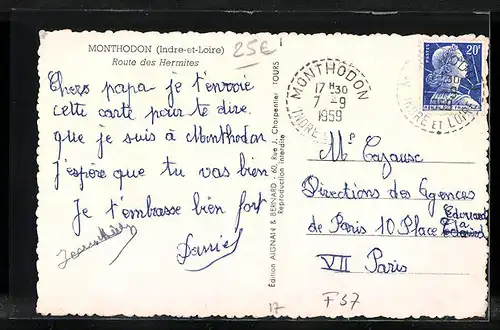 MONTHODON (Indre-et-Loire)
Route des Hermites
25€
Chers papa je t'envoie
cette carte pour te dire
que je suis à Monthodon
j'espère que tu vas bien
Je t'embrasse bien fort
Edition AIGNAN & BERNARD - 60, Rue J. Charpentier TOURS
Reproduction interdite
MONTHODON
17 H30
7 - 9
1959
INDRE
POSTES
20F
INDRE ET LOIRE
Mr Cazausc
Directions des Agences
de Paris 10 Place Edouard
VII Paris
17
F37